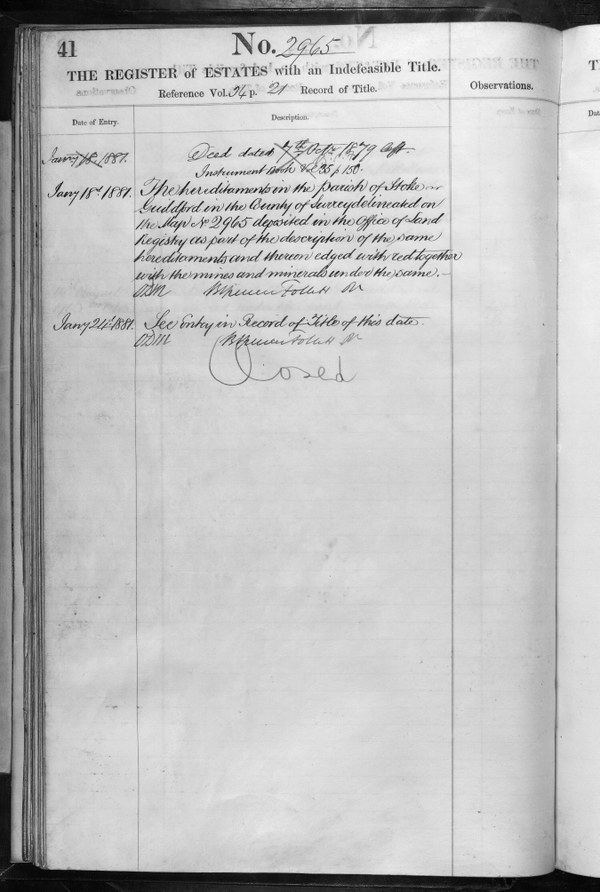 41
No. 2965
THE REGISTER of ESTATES with an Indefeasible Title.
Reference Vol. 24 p. 21 Record of Title.
Observations.
Date of Entry.
Description.
Jany 18 1881.
Deed dated 7th Octr 1879
Instrument Book Vol 35 p 150.
Jany 18th 1881.
The hereditaments in the parish of Stoke
Guildford in the County of Surrey delineated on
the Map No 2965 deposited in the Office of Land
Registry as part of the description of the same
hereditaments and thereon edged with red together
with the mines and minerals under the same.
Brent Follett
Jany 24th 1881.
See Entry in Record of Title of this date.
Brent Follett
Closed